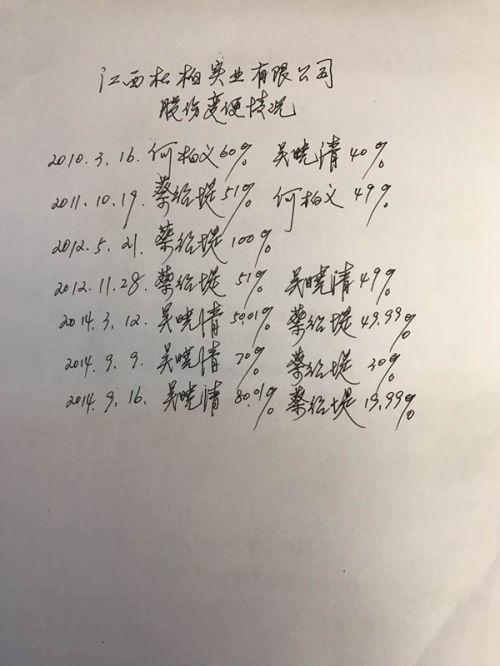 江西松柏实业有限公司
股份变便情况
2010.3.16.何柏义60% 吴晓清40%
2011.10.19.蔡纶堤51% 何柏义49%
2012.5.21.蔡纶堤100%
2012.11.28.蔡纶堤51% 吴晓清49%
2014.3.12.吴晓清50.01% 蔡纶堤49.99%
2014.9.9.吴晓清70% 蔡纶堤30%
2014.9.16.吴晓清80.01% 蔡纶堤19.99%